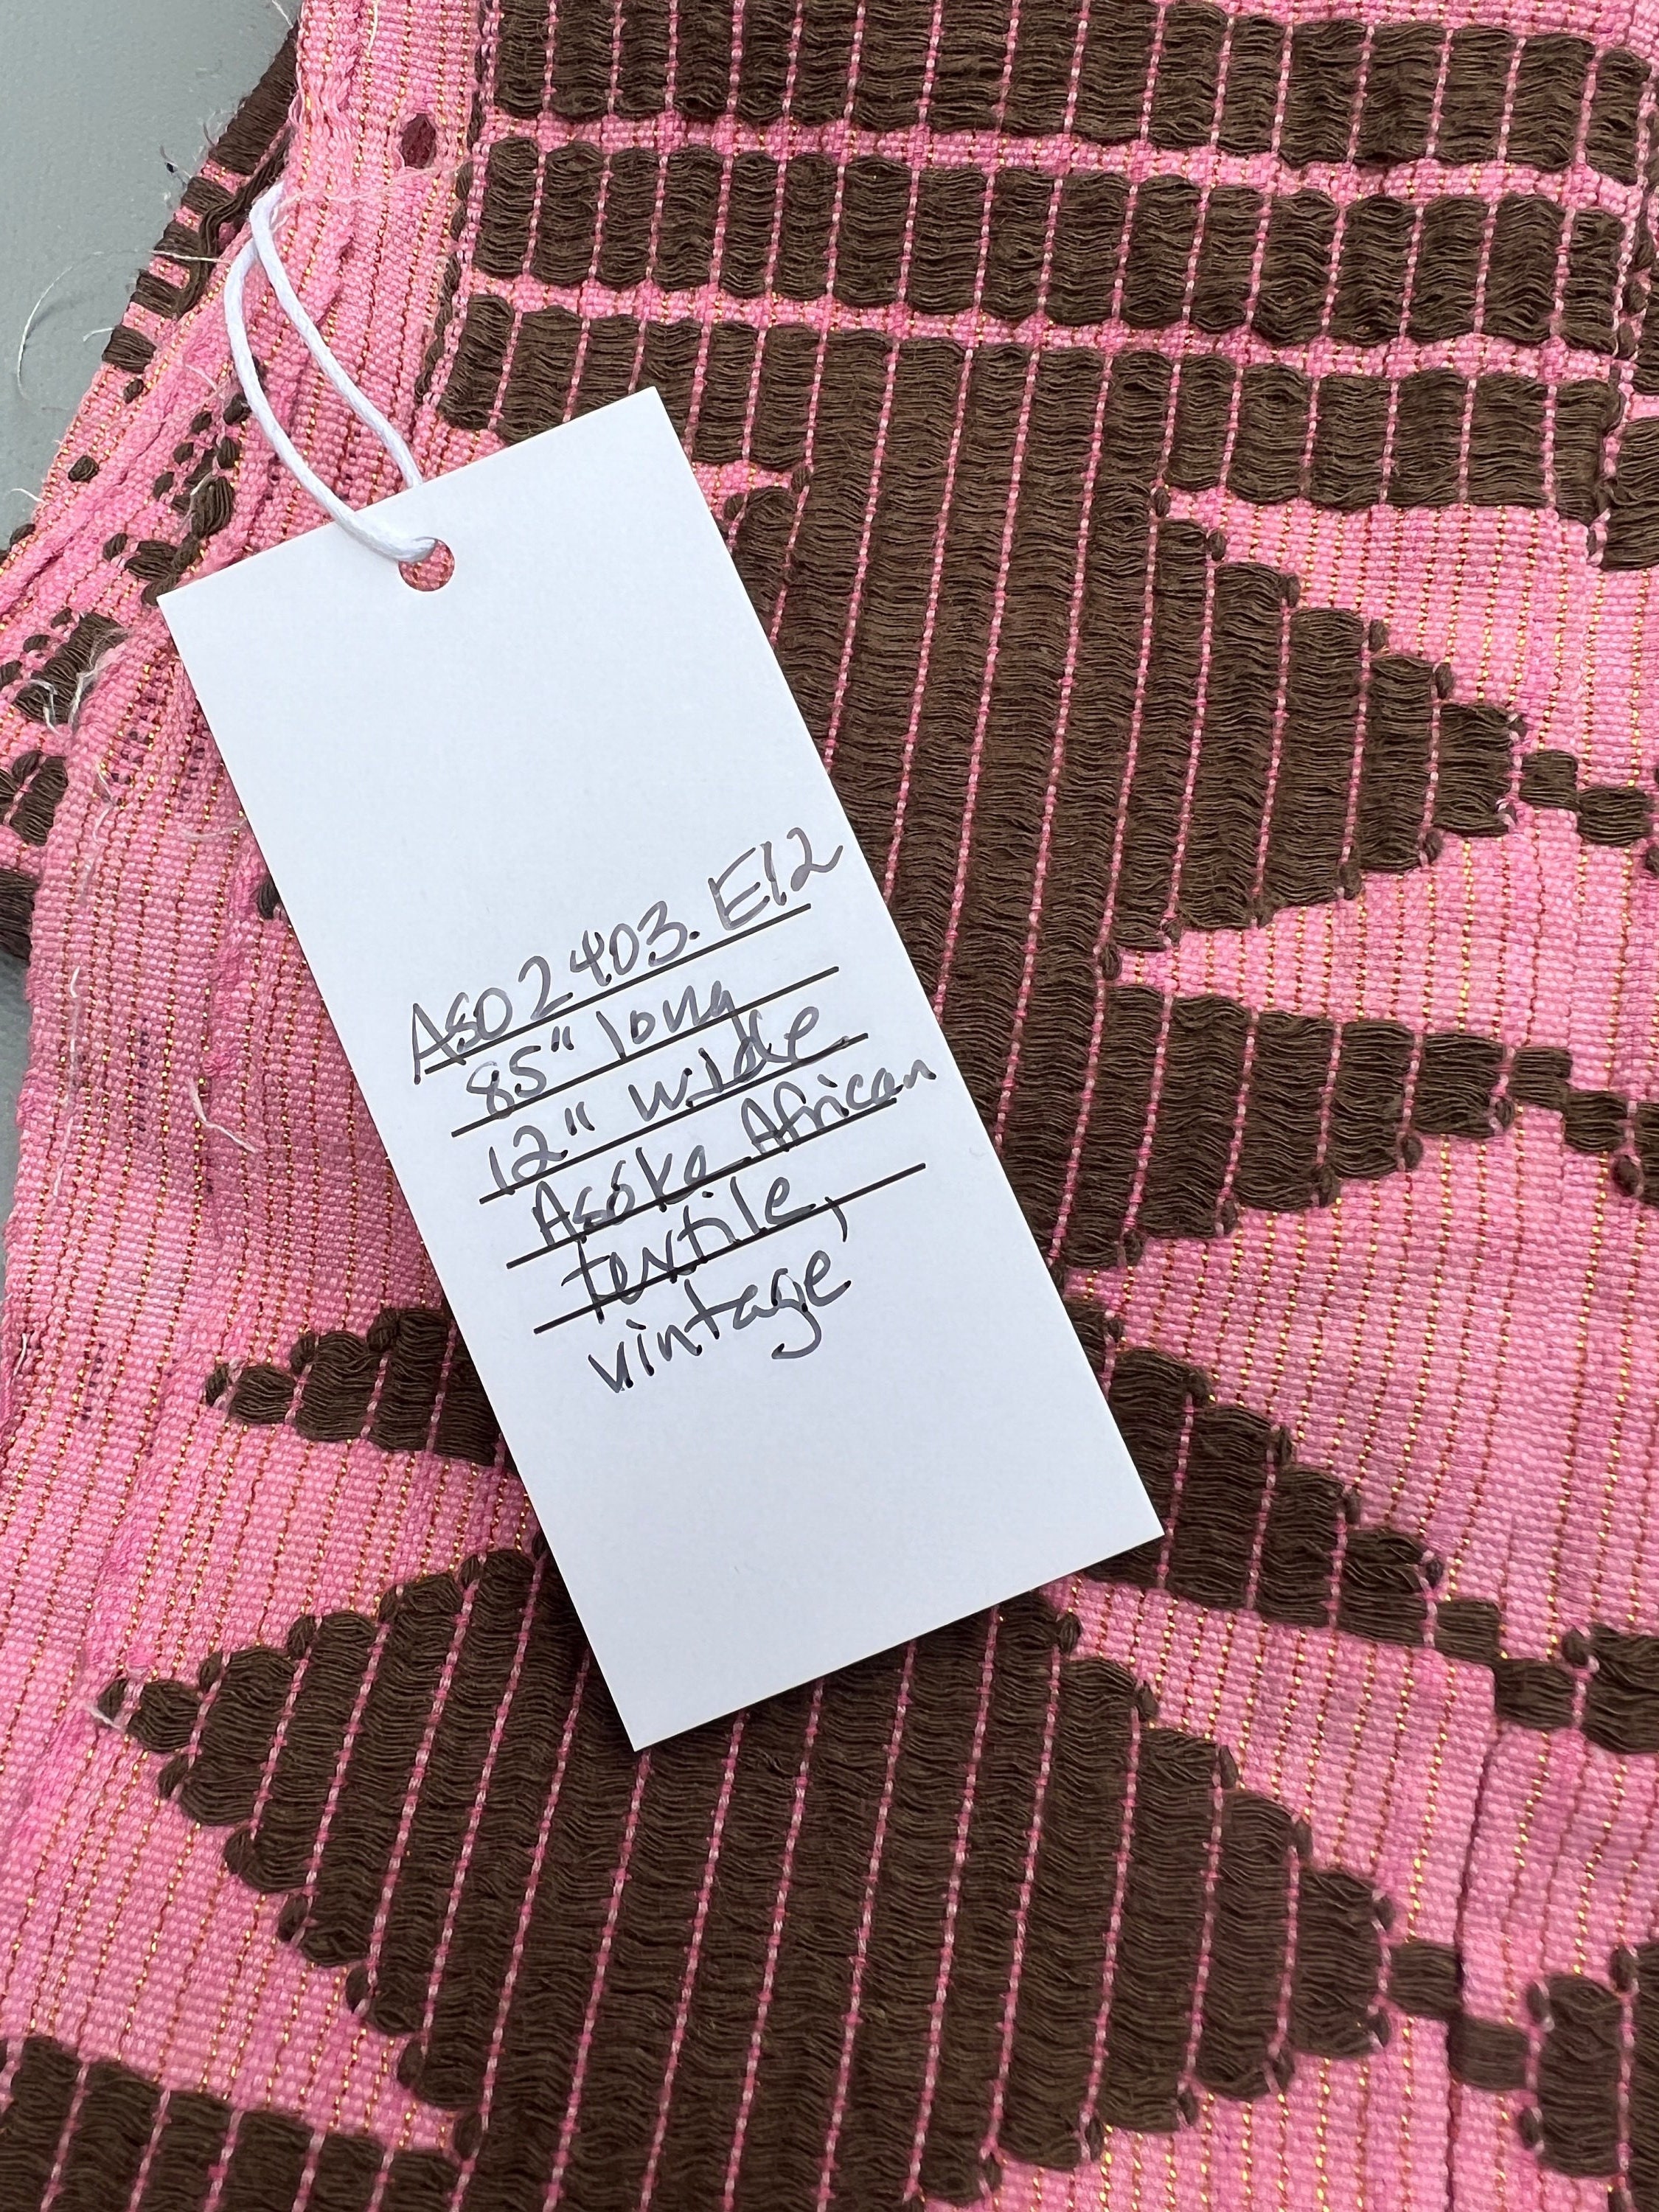 Aso2403. E12
85" long
12" wide
Asoke African
textile,
vintage